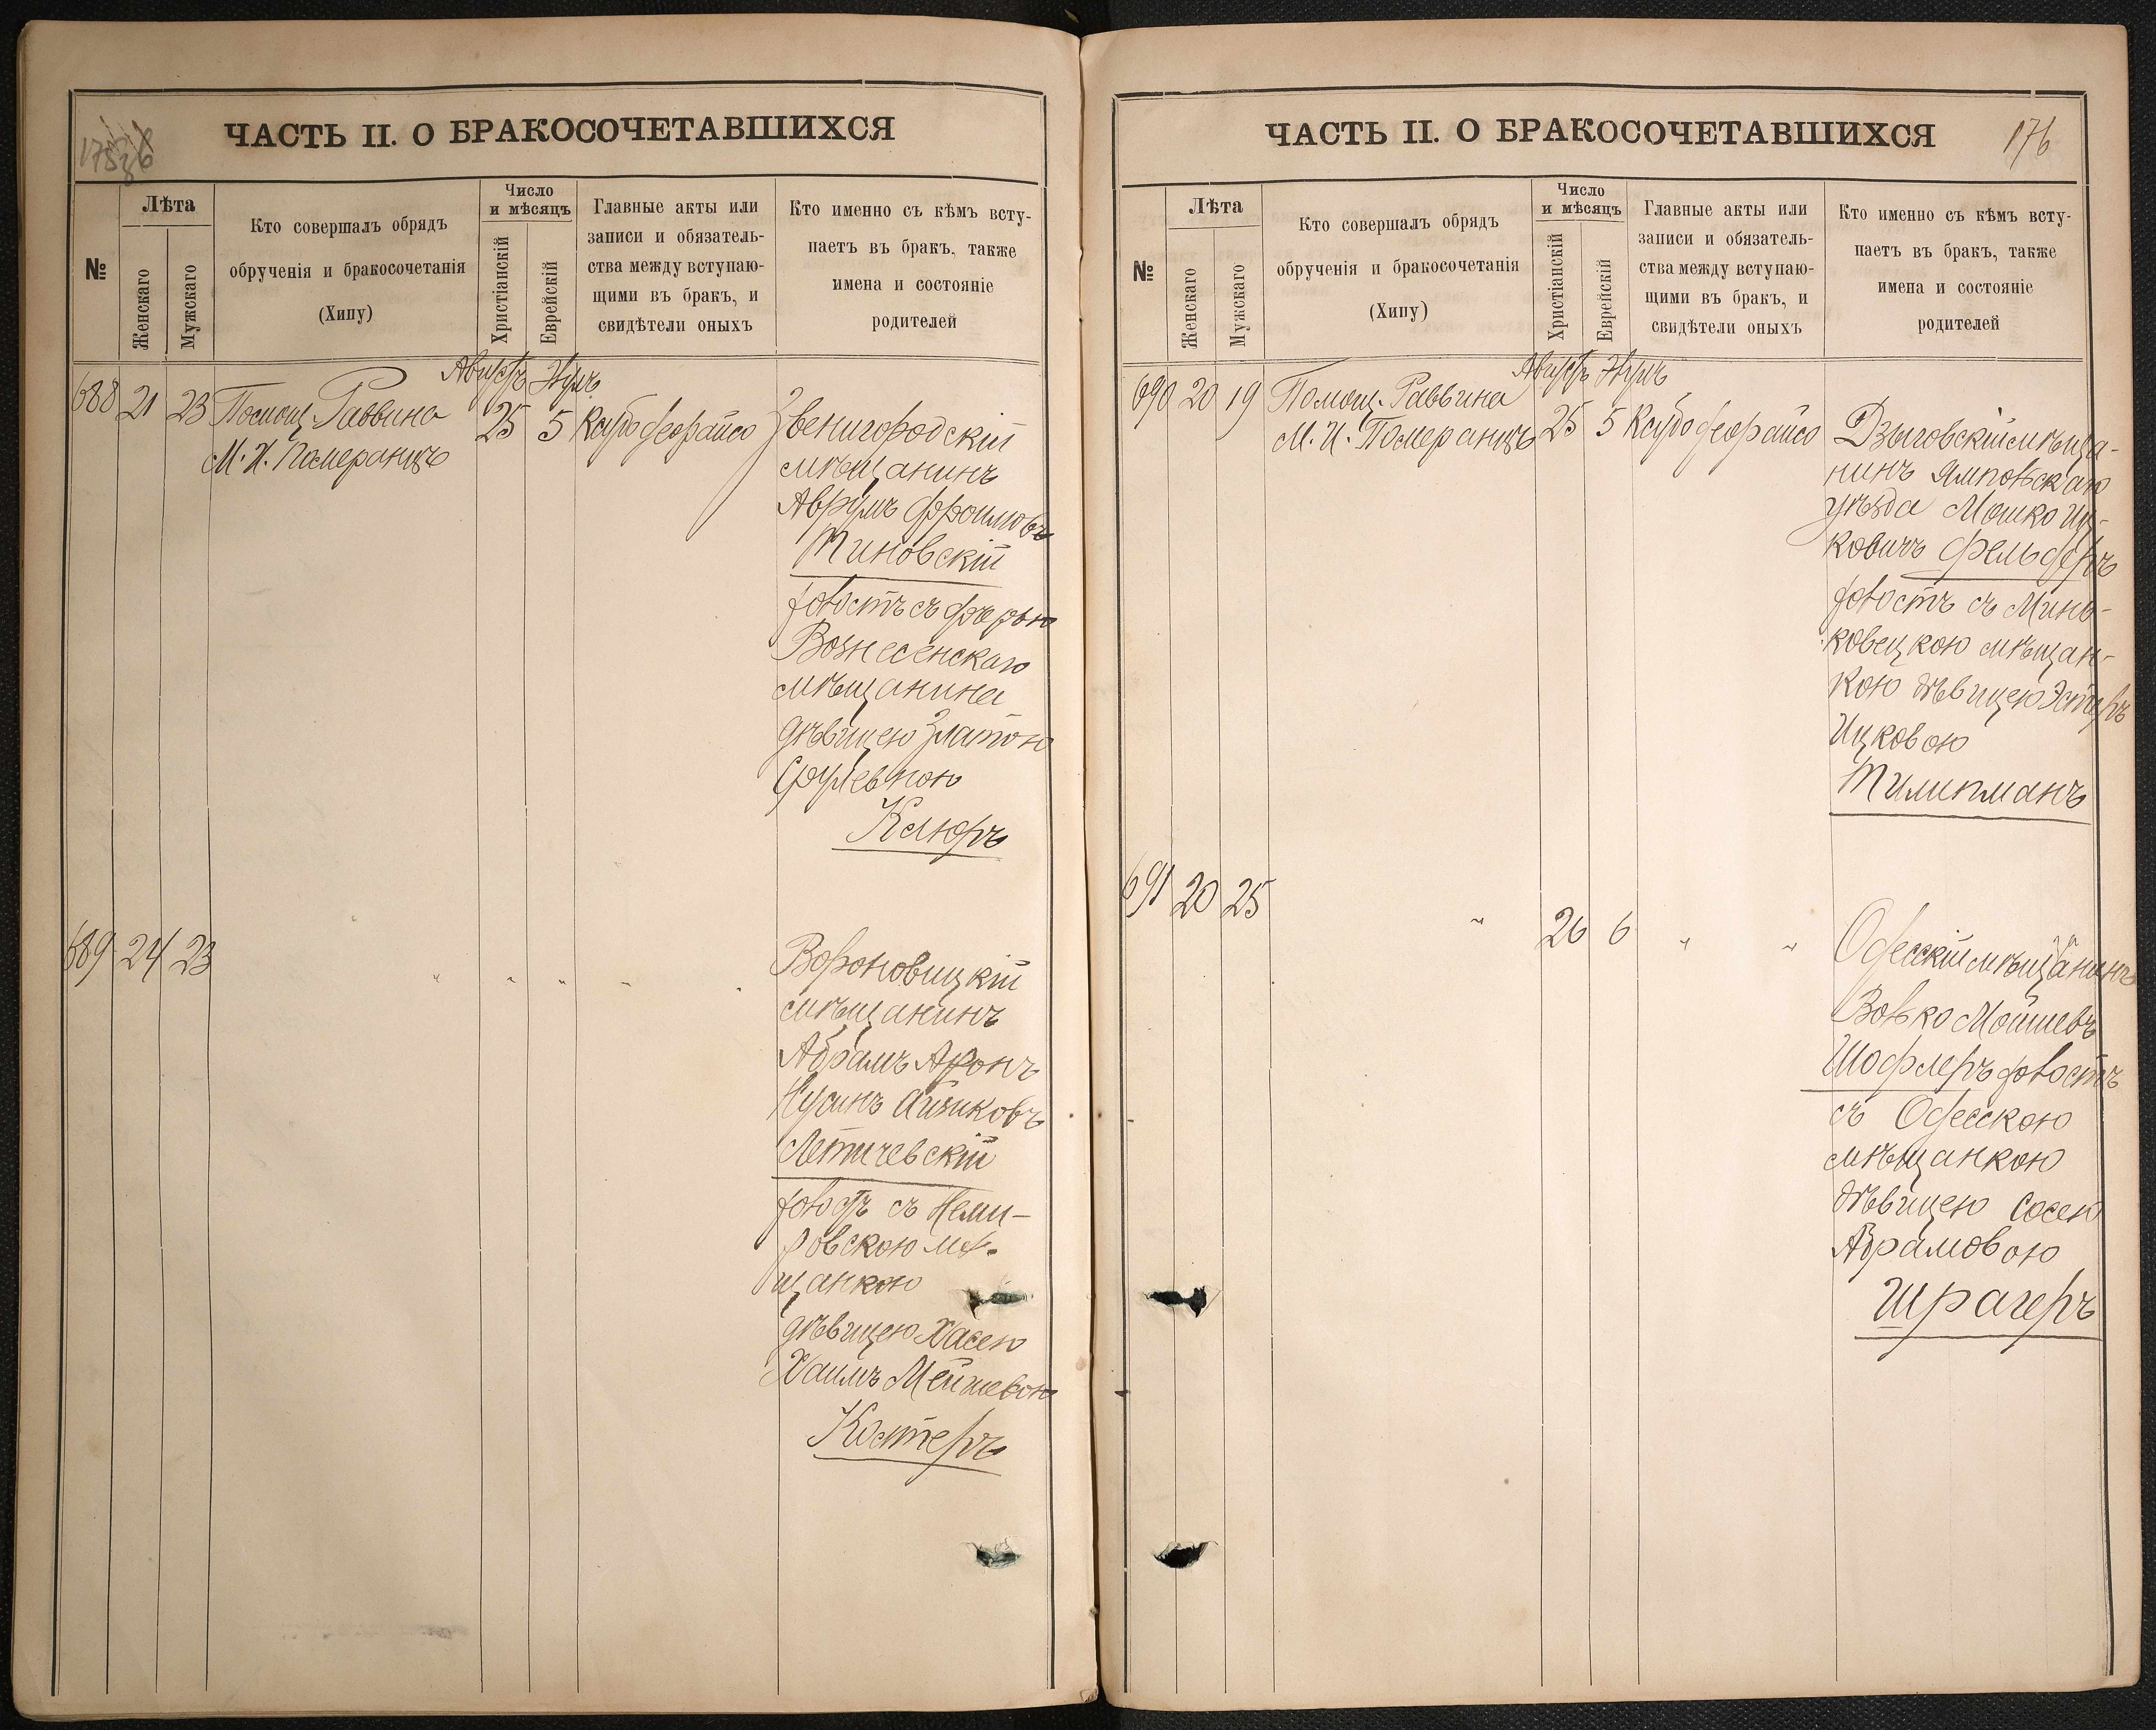 ЧАСТЬ II. О БРАКОСОЧЕТАВШИХСЯ
№
Лѣта
Женскаго
Мужскаго
Кто совершалъ обрядъ
обрученія и бракосочетанія
(Хипу)
Число
и мѣсяцъ
Христіанскій
Еврейскій
Главные акты или
записи и обязатель-
ства между вступаю-
щими въ бракъ, и
свидѣтели оныхъ
Кто именно съ кѣмъ всту-
паетъ въ бракъ, также
имена и состояніе
родителей
Августъ
688 21 23 Помощ. Раввина 25 5
М. И. Померанцъ
Звенигородскій
мѣщанинъ
Аврумъ Фроимовъ
Тиновскій
холостъ съ дочерью
Вознесенскаго
мѣщанина
дѣвицею Златою
Срулевною
Клюръ
689 24 23 " " " " "
Вороновицкій
мѣщанинъ
Абрамъ Аронъ
Нусинъ Айзиковъ
Летичевскій
холостъ съ Неми-
ровскою мѣ-
щанкою
дѣвицею Хасею
Хаимъ Мейшевою
Костеръ
ЧАСТЬ II. О БРАКОСОЧЕТАВШИХСЯ
176
№
Лѣта
Женскаго
Мужскаго
Кто совершалъ обрядъ
обрученія и бракосочетанія
(Хипу)
Число
и мѣсяцъ
Христіанскій
Еврейскій
Главные акты или
записи и обязатель-
ства между вступаю-
щими въ бракъ, и
свидѣтели оныхъ
Кто именно съ кѣмъ всту-
паетъ въ бракъ, также
имена и состояніе
родителей
Августъ
690 20 19 Помощ. Раввина 25 5
М. И. Померанцъ
Дзыговскій мѣща-
нинъ Ямпольскаго
уѣзда Мошко Иц-
ковичъ Фельдеръ
холостъ съ Минь-
ковецкою мѣщан-
кою дѣвицею Эстеръ
Ицковою
Тилипманъ
691 20 25 " 26 6 " "
Одесскій мѣщанинъ
Волько Мойшевъ
Шофлеръ холостъ
съ Одесскою
мѣщанкою
дѣвицею Сосею
Абрамовою
Шрагеръ